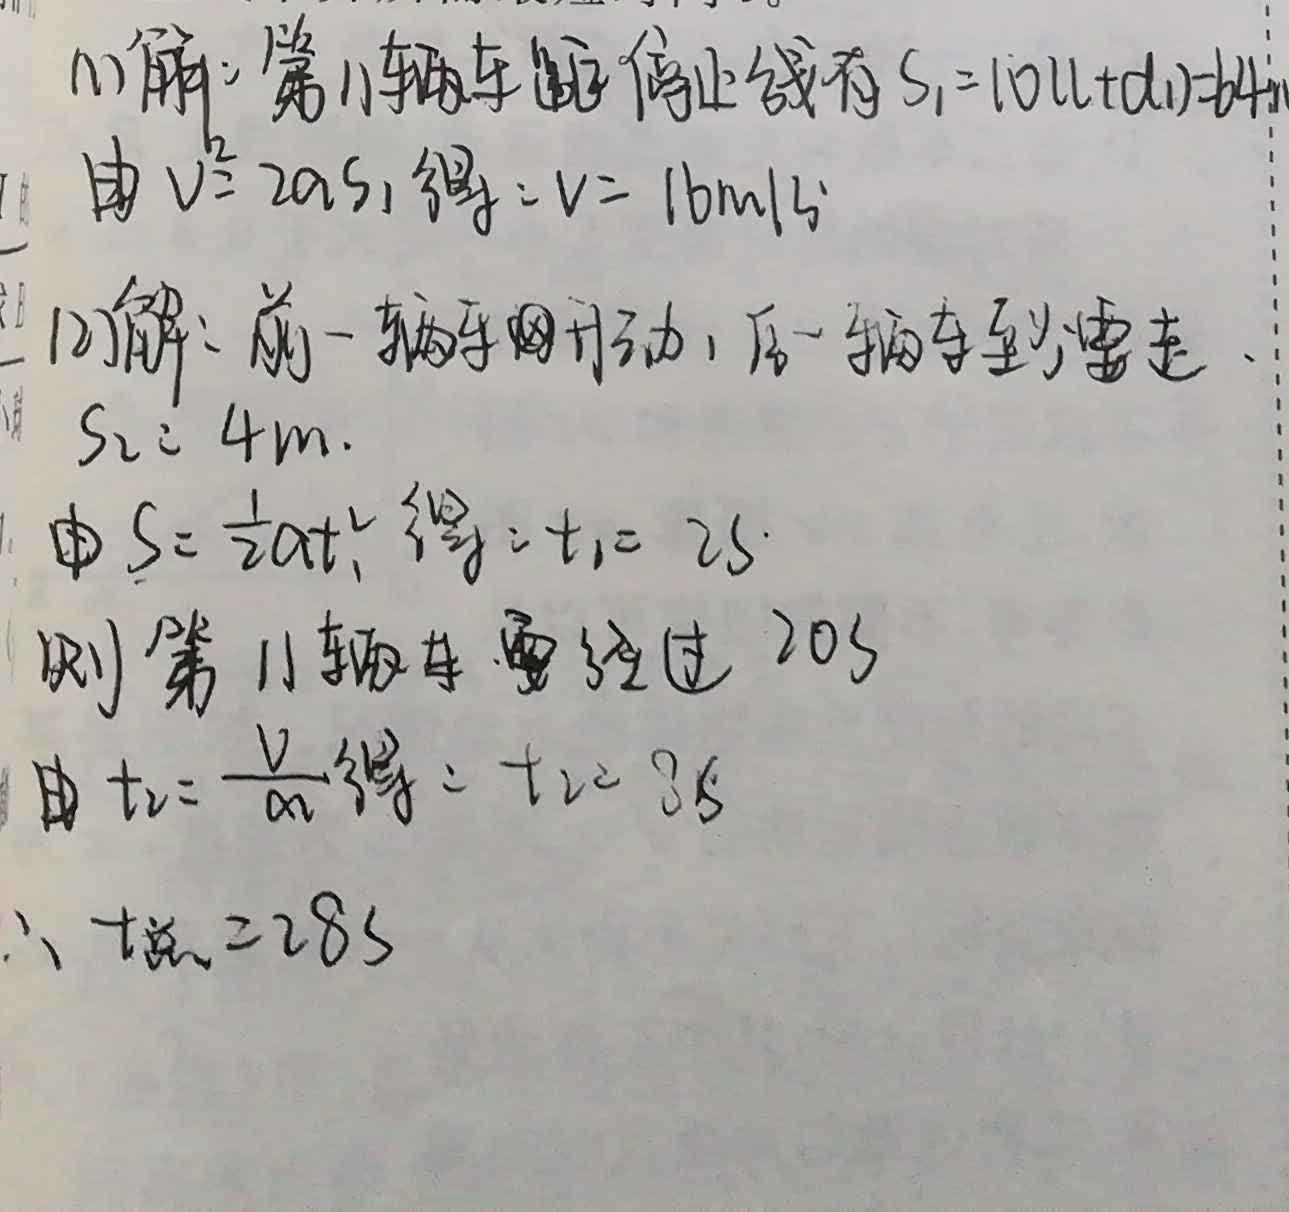 (1)解:第11辆车距停止线有S₁=10(l+d₁)=64m
由V²=2aS₁得:V=16m/s
(2)解:前一辆车刚开动,后一辆车至少需走
S₂=4m.
由S=½at₁²得:t₁=2s.
则第11辆车要经过20s
由t₂=V/a得:t₂=8s
∴t总=28s